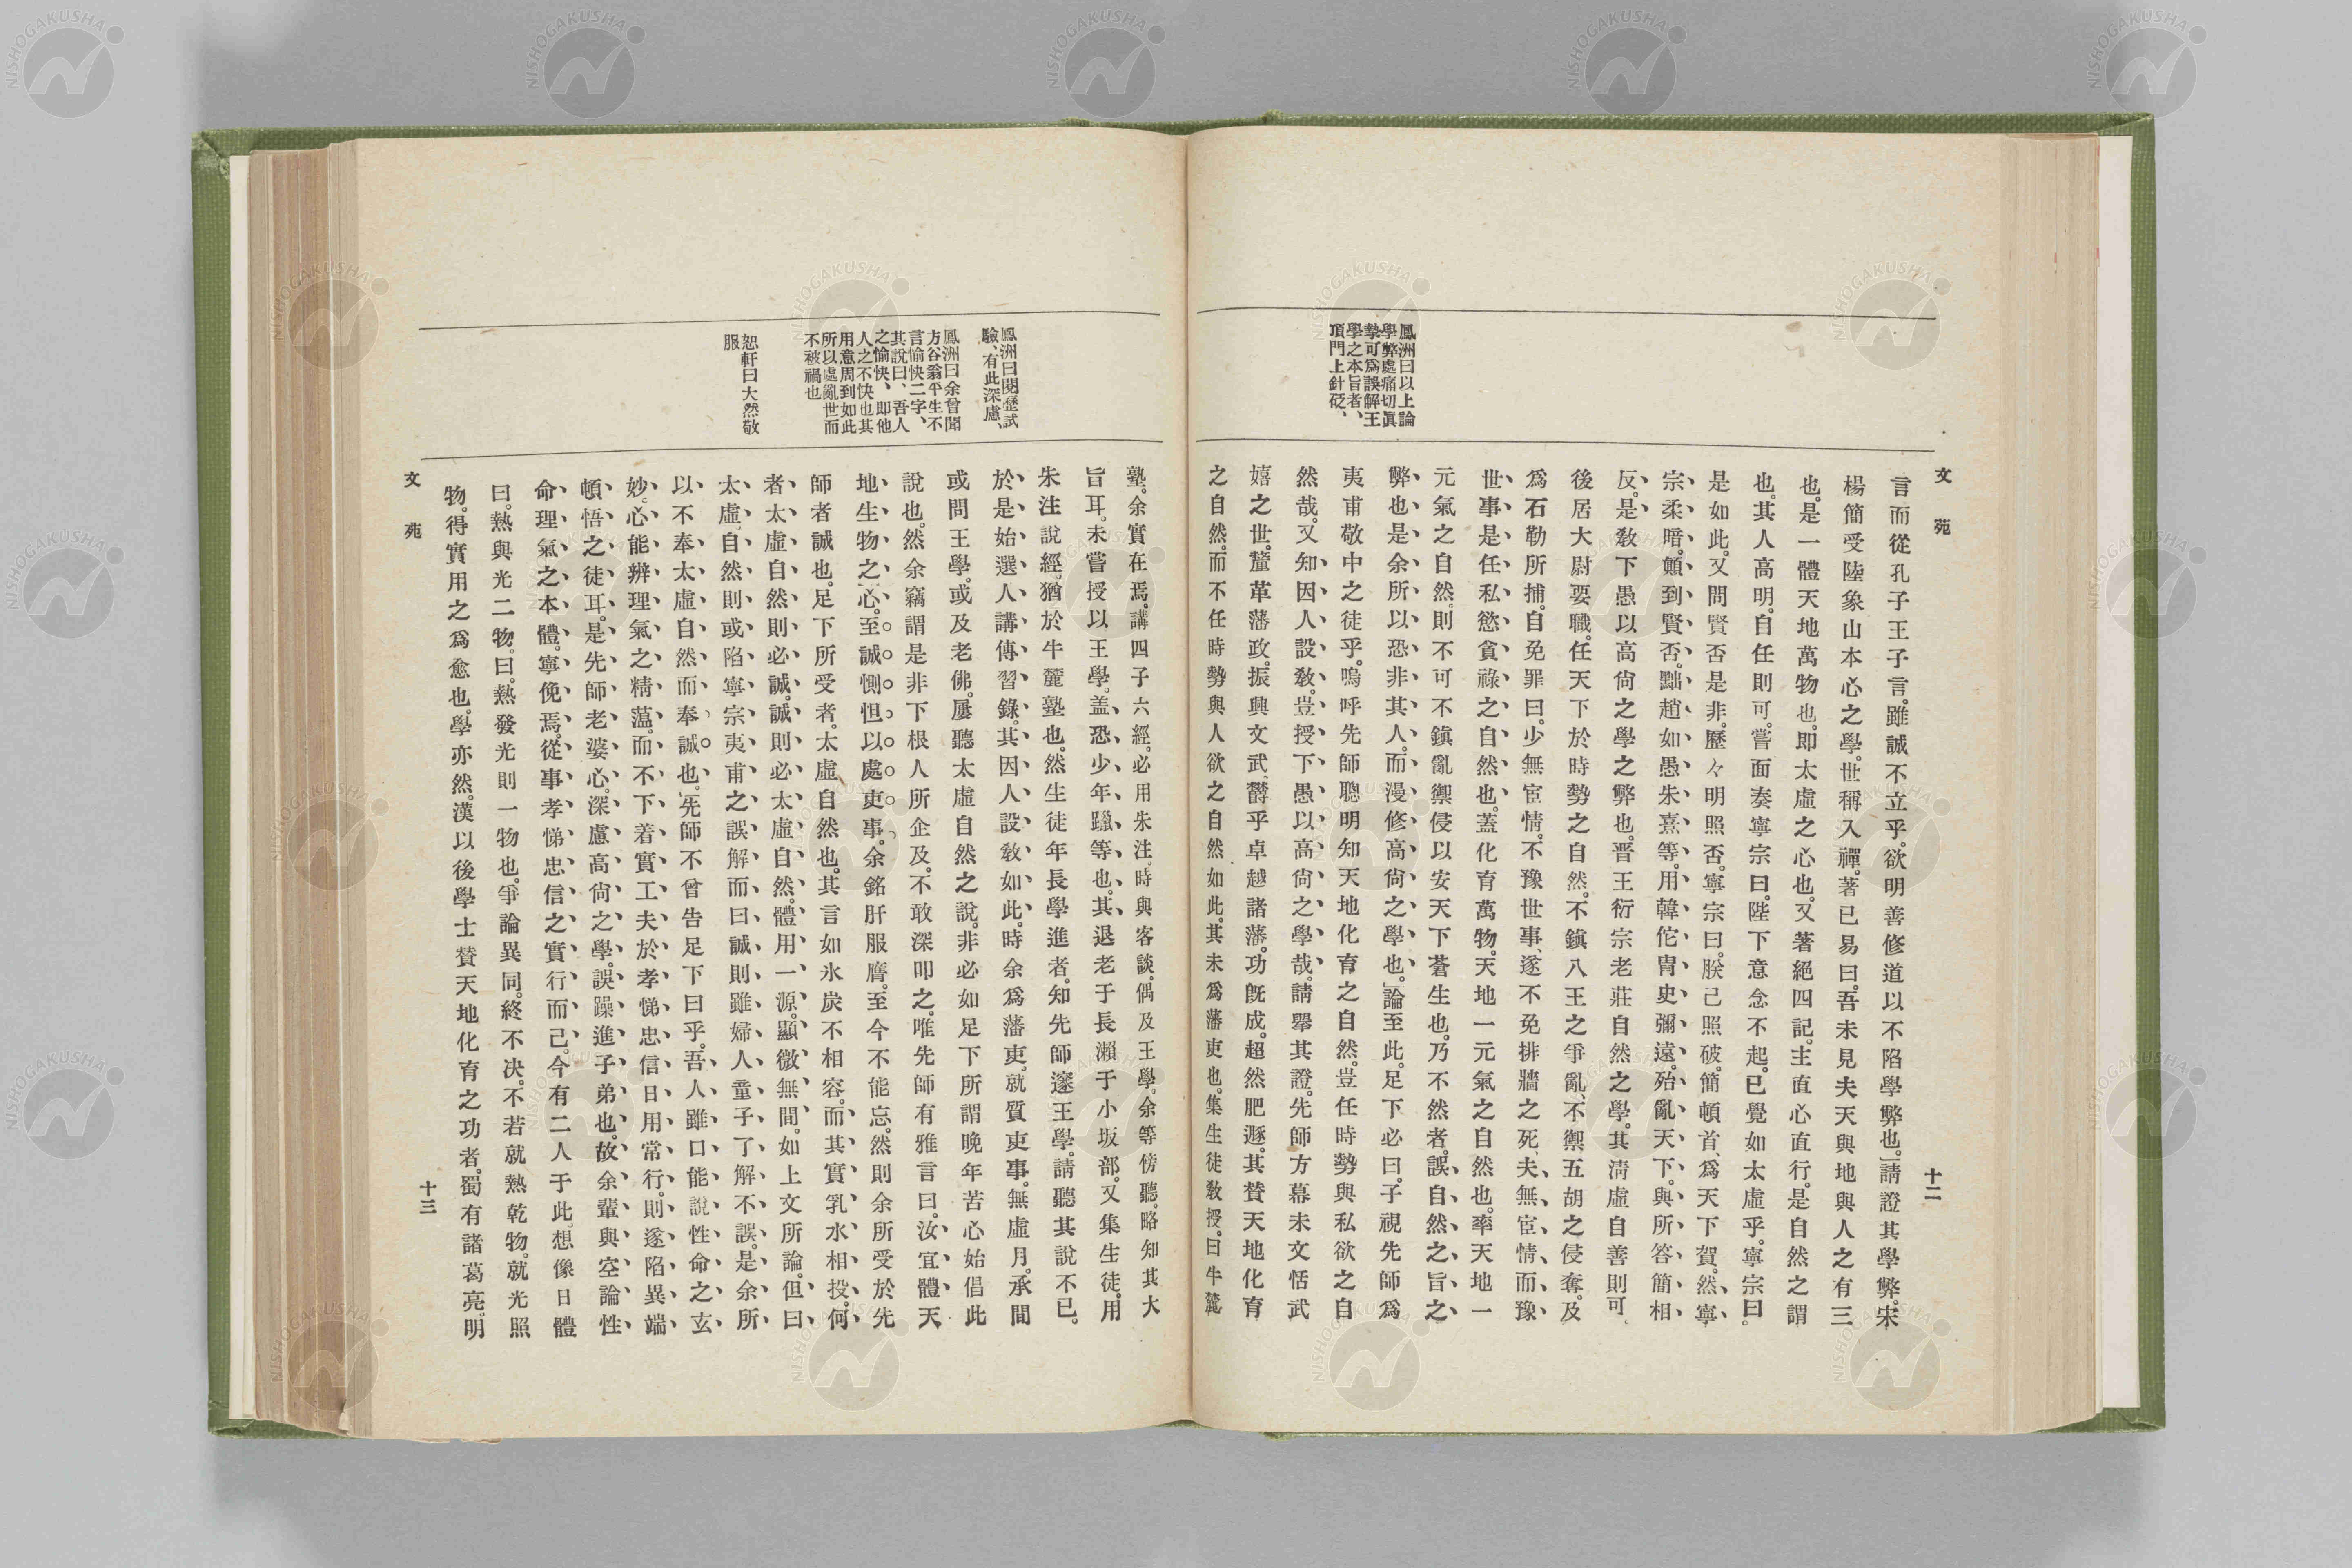 文苑
十二
鳳洲曰以上論
學弊處痛切眞
摯可爲誤解王
學之本旨者、
頂門上針砭、
言而從孔子王子言。雖誠不立乎。欲明善修道以不陷學弊也。」請證其學弊。宋
楊簡受陸象山本心之學。世稱入禪。著已易曰。吾未見夫天與地與人之有三
也。是一體天地萬物也。即太虛之心也。又著絕四記。主直心直行。是自然之謂
也。其人高明。自任則可。嘗面奏寧宗曰。陛下意念不起。已覺如太虛乎。寧宗曰。
是如此。又問賢否是非。歷々明照否。寧宗曰。朕己照破。簡頓首、爲天下賀。然、寧、
宗、柔、暗。顛、到、賢、否。黜、趙、如、愚、朱、熹、等。用、韓、侂、冑、史、彌、遠。殆、亂、天、下。與、所、答、簡、相、
反。是、敎下愚以高尙之學之弊也。晋王衍宗老莊自然之學。其淸虛自善則可、
後居大尉要職。任天下於時勢之自然。不鎭八王之爭亂、不禦五胡之侵奪。及
爲石勒所捕。自免罪曰。少無宦情。不豫世事、遂不免排牆之死、夫、無、宦、情、而、豫、
世、事、是、任、私、慾、貪、祿、之、自、然、也。蓋化育萬物。天地一元氣之自然也。率天地一
元氣之自然、則不可不鎭亂禦侵以安天下蒼生也。乃不然者。誤、自、然、之、旨、之、
弊、也、是、余、所、以、恐、非、其、人。而、漫、修、高、尙、之、學、也。」論至此。足下必曰。子視先師爲
夷甫敬中之徒乎。嗚呼先師聰明知天地化育之自然。豈任時勢與私欲之自
然哉。又知、因、人、設、敎。豈、授、下、愚、以、高、尙、之、學、哉。請擧其證。先師方幕末文恬武
嬉之世。釐革藩政。振興文武、欝乎卓越諸藩。功旣成。超然肥遯。其贊天地化育
之自然。而不任時勢與人欲之自然如此。其未爲藩吏也。集生徒敎授。曰牛麓
塾。余實在焉。講四子六經。必用朱注。時與客談。偶及王學。余等傍聽。略知其大
旨耳。未嘗授以王學。盖、恐、少、年、躐、等、也、其、退老于長瀨于小坂部。又集生徒。用
朱注說經。猶於牛麓塾也。然生徒年長學進者。知先師邃王學。請聽其說不已。
於、是、始、選、人、講、傳、習、錄。其、因、人、設、敎、如、此。時余爲藩吏。就質吏事。無虛月。承間
或問王學。或及老佛。屢聽太虛自然之說。非必如足下所謂晚年苦心始倡此
說也。然余竊謂是非下根人所企及。不敢深叩之。唯先師有雅言曰。汝、宜、體、天、
地、生、物、之、心。至○誠○惻○怛○以○處○吏○事。余銘肝服膺。至今不能忘。然則余所受於先
師者誠也。足下所受者。太虛自然也。其言如氷炭不相容。而、其、實、乳、水、相、投、何、
者、太、虛、自、然、則、必、誠。誠、則、必、太、虛、自、然。體、用、一、源。顯、微、無、間。如上文所論。但、曰、
太、虛、自、然、則、或、陷、寧、宗、夷、甫、之、誤、解、而、曰、誠、則、雖、婦、人、童、子、了、解、不、誤。是、余、所、
以、不奉太虛自然、而、奉、誠○也、」先師不曾告足下曰乎。吾、人、雖、口、能、說、性、命、之、玄、
妙。心、能、辨、理、氣、之、精、蘊。而、不、下、着、實、工、夫、於、孝、悌、忠、信、日、用、常、行。則、遂、陷、異、端、
頓、悟、之、徒、耳。是、先、師、老、婆、心。深、慮、高、尙、之、學。誤、躁、進、子、弟、也。故、余、輩、與、空、論、性、
命、理、氣、之、本、體。寧、俛、焉。從、事、孝、悌、忠、信、之、實、行、而、己。今有二人于此。想像日體
曰。熱與光二物。曰。熱發光則一物也。爭論異同。終不決。不若就熱乾物。就光照
物。得實用之爲愈也。學亦然。漢以後學士贊天地化育之功者。蜀有諸葛亮。明
鳳洲曰閱歷試
驗、有此深慮、
鳳洲曰余曾聞
方谷翁平生不
言愉快二字、
其說曰、吾人
之愉快、即他
人之不快也其
用意周到如此
所以處亂世而
不被禍也
恕軒曰大然敬
服
文苑
十三